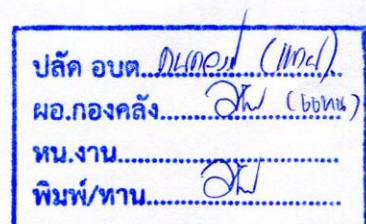 ปลัด อบต.................(แทน)
ผอ.กองคลัง.................(แทน)
หน.งาน.................
พิมพ์/ทาน.................